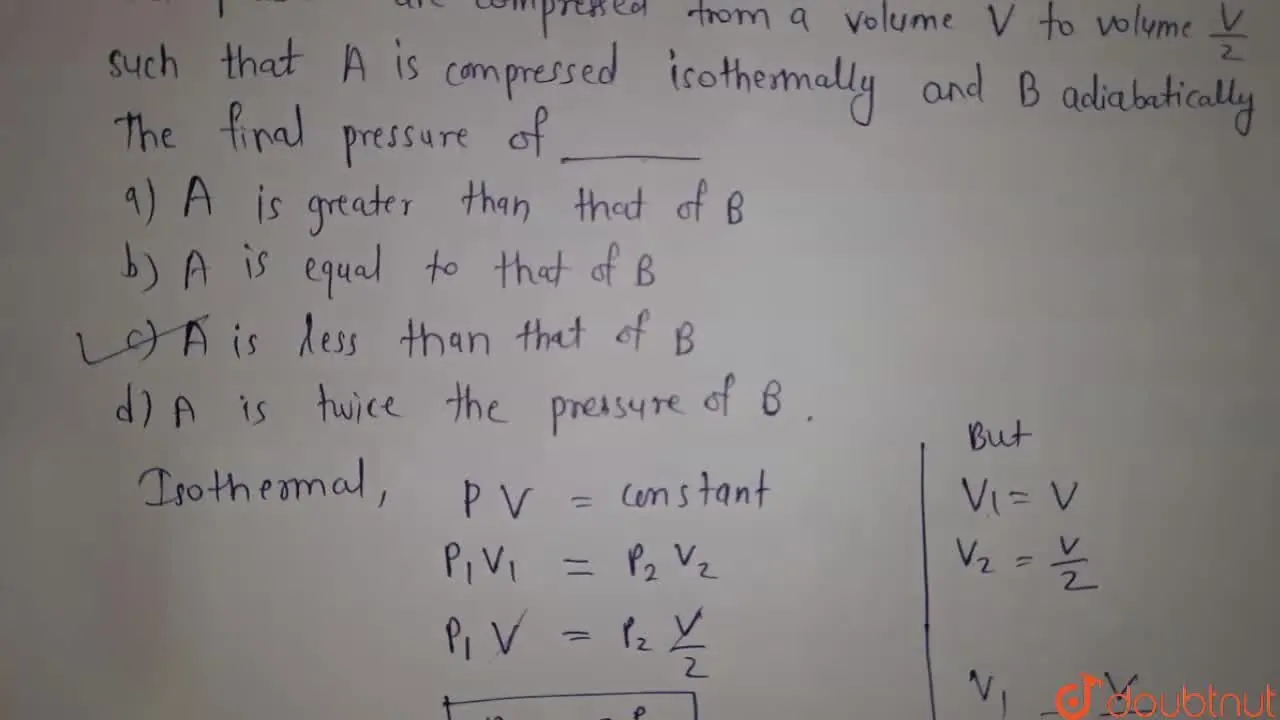 are compressed from a volume V to volume V/2
such that A is compressed isothermally and B adiabatically
The final pressure of ______
a) A is greater than that of B
b) A is equal to that of B
c) A is less than that of B
d) A is twice the pressure of B.
But
Isothermal, PV = constant
V1 = V
P1V1 = P2 V2
V2 = V/2
P1 V = P2 V/2
V1 V
doubtnut